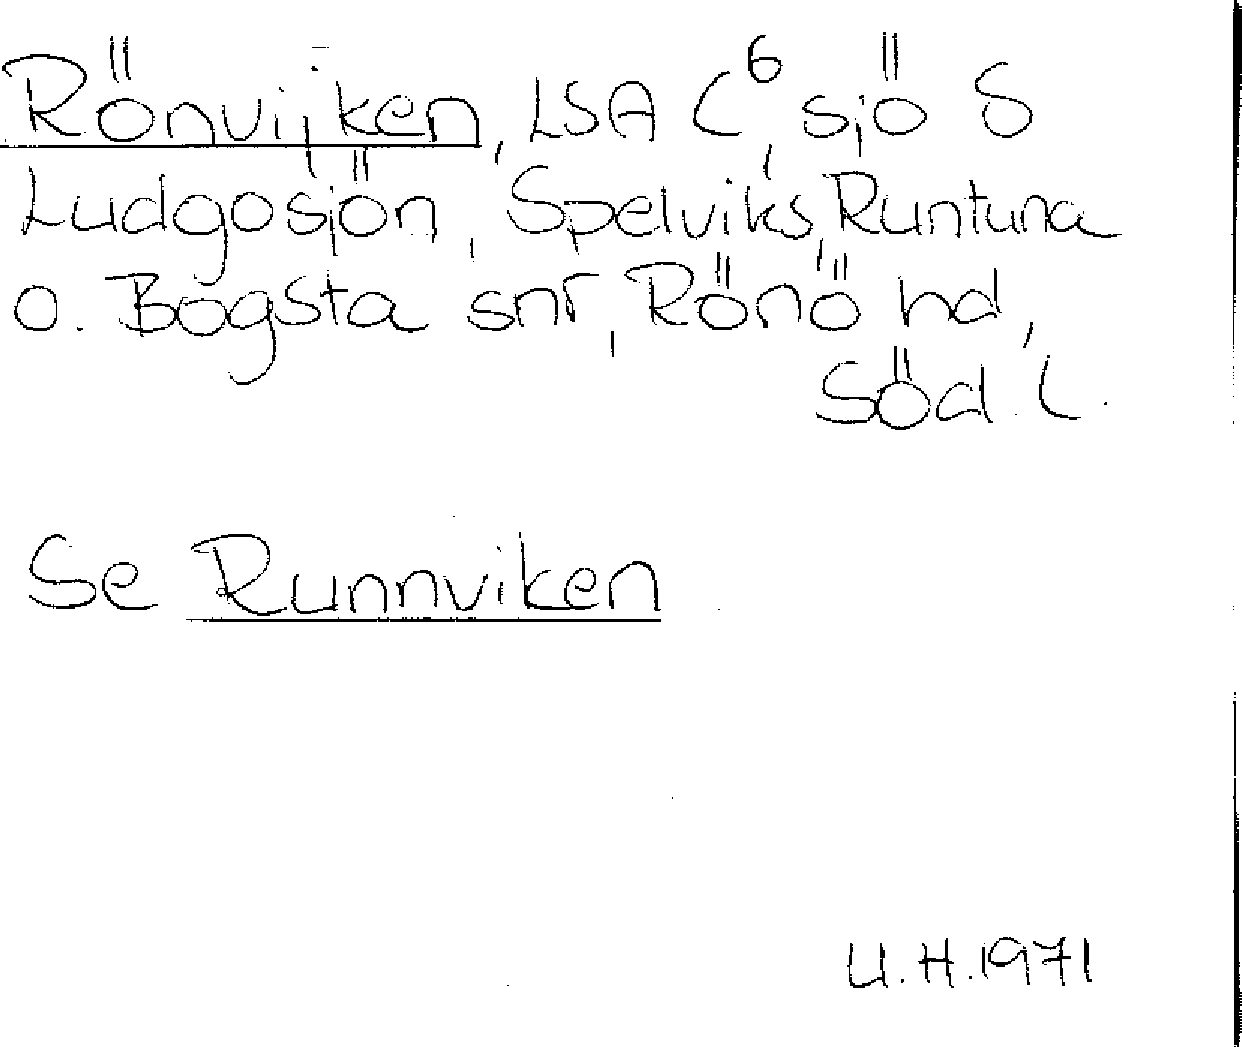 Rönviken, LSA C⁶, sjö S
Ludgosjön, Spelviks, Runtuna
o. Bogsta snr, Rönö hd,
Söd. L.
Se Runnviken
U.H. 1971